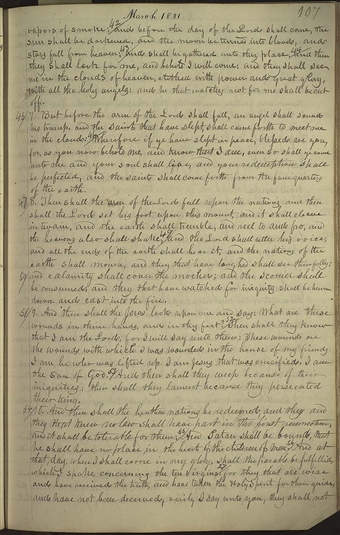 March 1831
107
vapors of smoke; and before the day of the Lord shall come, the
sun shall be darkened, and the moon be turned into blood, and
stars fall from heaven; and shall be gathered unto this place, and then
they shall look for me, and behold I will come: and they shall see
me in the clouds of heaven, clothed with power and great glory,
with all the holy angels: and he that watches not for me shall be cut
off.
7. But before the arm of the Lord shall fall, an angel shall sound
his trump, and the saints that have slept, shall come forth to meet me
in the cloud: Wherefore if ye have slept in peace, blessed are you,
for as you now behold me and know that I am, even so shall ye come
unto me and your soul shall live, and your redemption shall
be perfected, and the saints shall come forth from the four quarters
of the earth.
8. Then shall the arm of the Lord fall upon the nations, and then
shall the Lord set his foot upon this mount, and it shall cleave
in twain, and the earth shall tremble, and reel to and fro, and
the heavens also shall shake, and the Lord shall utter his voice,
and all the ends of the earth shall hear it, and the nations of the
earth shall mourn, and they that have laughed shall see their folly;
and calamity shall cover the mocker, and the scorner shall
be consumed, and they that have watched for iniquity, shall be hewn
down and cast into the fire.
9. And then shall the Jews look upon me and say: What are these
wounds in thine hands, and in thy feet? Then shall they know
that I am the Lord, for I will say unto them: These wounds are
the wounds with which I was wounded in the house of my friends.
I am he who was lifted up. I am Jesus that was crucified. I am
the Son of God. And then shall they weep because of their
iniquities; then shall they lament because they persecuted
their king.
10. And then shall the heathen nations be redeemed, and they
they that knew no law shall have part in the first resurrection,
and it shall be tolerable for them; and Satan shall be bound, that
he shall have no place in the hearts of the children of men. And at
that day, when I shall come in my glory, shall the parable be fulfilled
which I spake concerning the ten virgins; for they that are wise
and have received the truth, and have taken the Holy Spirit for their guide,
and have not been deceived, verily I say unto you, they shall not